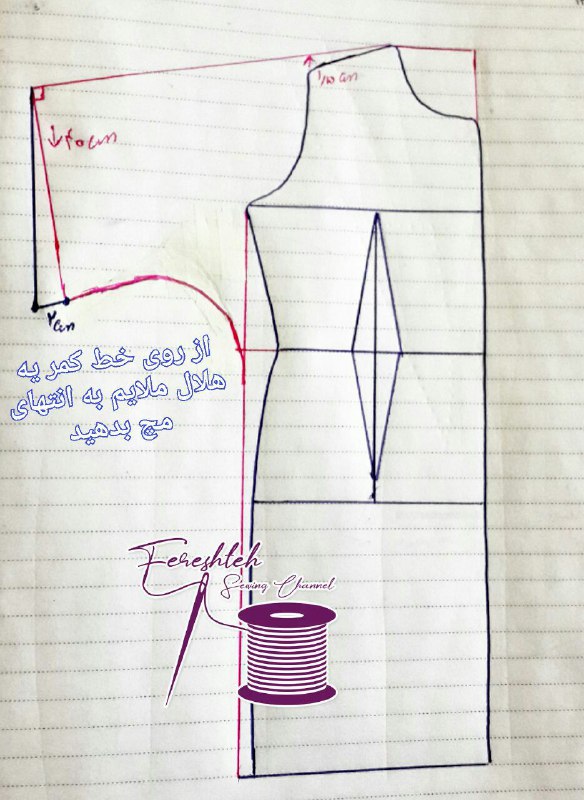 ۱/۵ cm
↓ ۴۰ cm
۲ cm
از روی خط کمر یه
هلال ملایم به انتهای
مچ بدهید
Fereshteh
Sewing Channel